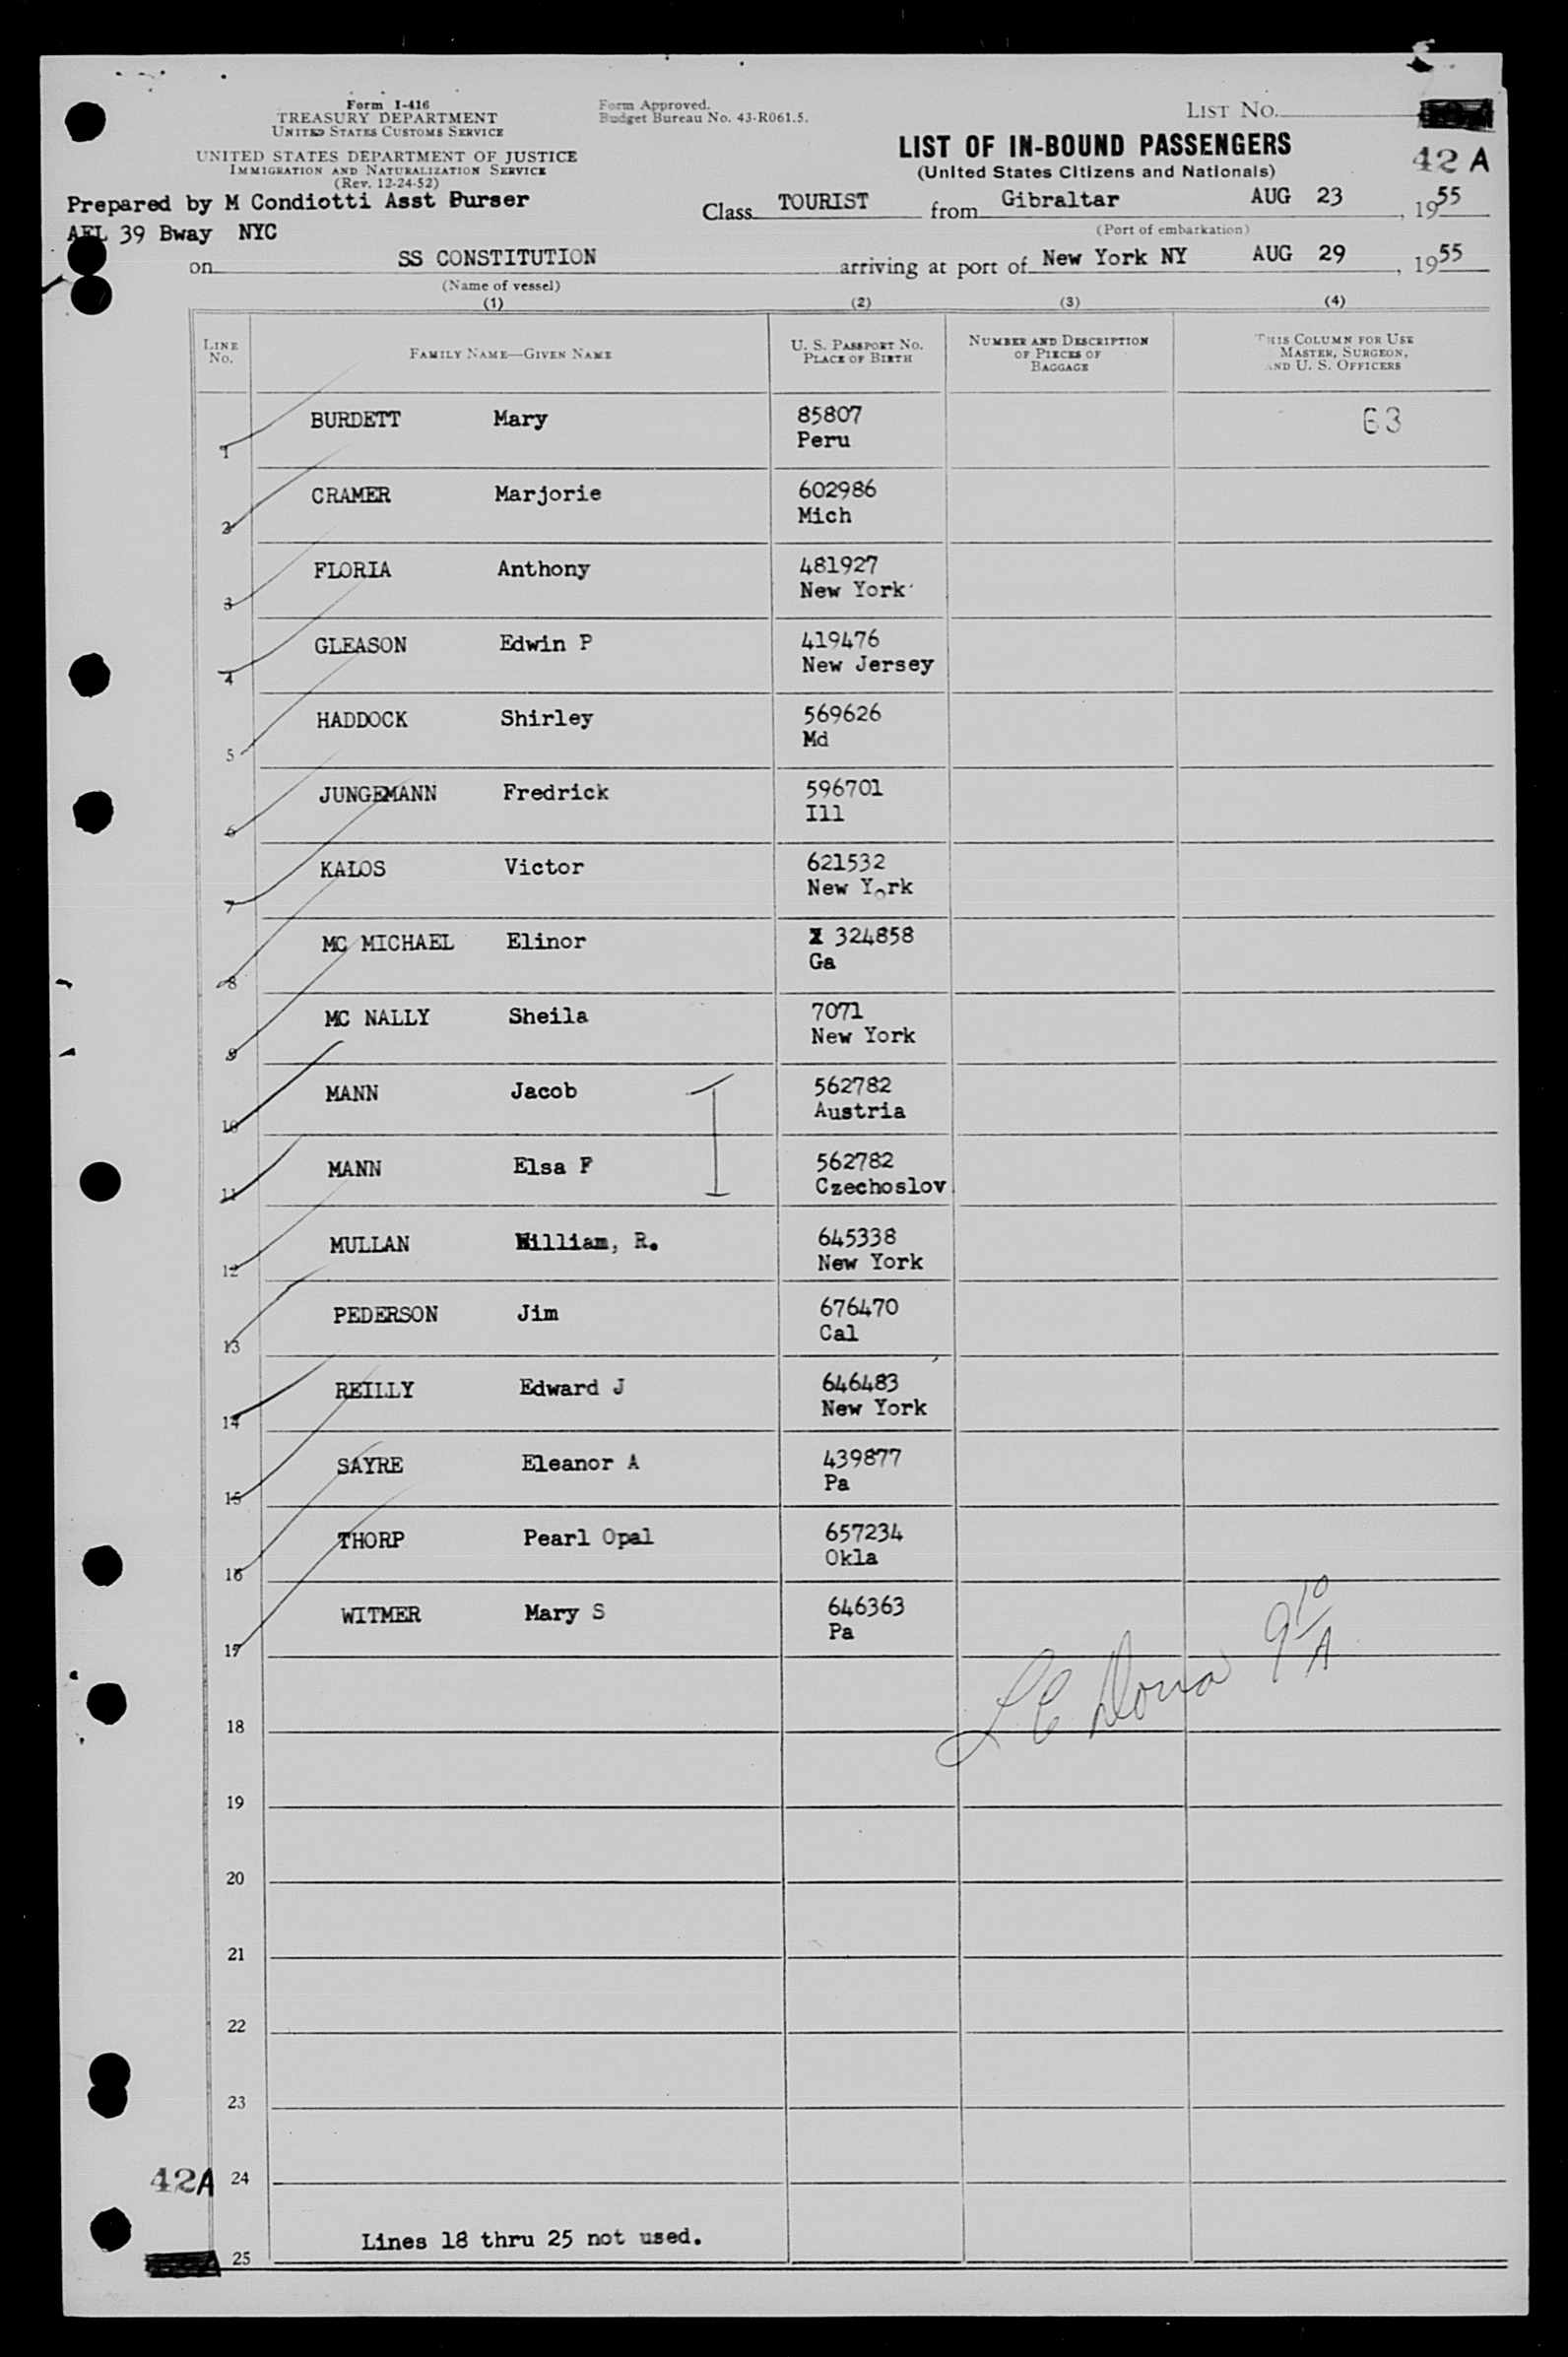 Form I-416
TREASURY DEPARTMENT
UNITED STATES CUSTOMS SERVICE
UNITED STATES DEPARTMENT OF JUSTICE
IMMIGRATION AND NATURALIZATION SERVICE
(Rev. 12-24-52)
Form Approved.
Budget Bureau No. 43-R061.5.
LIST NO.
LIST OF IN-BOUND PASSENGERS
(United States Citizens and Nationals)
42 A
Prepared by M Condiotti Asst Purser
AEL 39 Bway NYC
Class TOURIST from Gibraltar AUG 23, 1955
(Port of embarkation)
on SS CONSTITUTION arriving at port of New York NY AUG 29, 1955
(Name of vessel)
(1) (2) (3) (4)
LINE NO.
FAMILY NAME—GIVEN NAME
U. S. PASSPORT NO.
PLACE OF BIRTH
NUMBER AND DESCRIPTION
OF PIECES OF
BAGGAGE
THIS COLUMN FOR USE
MASTER, SURGEON,
AND U. S. OFFICERS
1 BURDETT Mary 85807 63
Peru
2 CRAMER Marjorie 602986
Mich
3 FLORIA Anthony 481927
New York
4 GLEASON Edwin P 419476
New Jersey
5 HADDOCK Shirley 569626
Md
6 JUNGEMANN Fredrick 596701
Ill
7 KALOS Victor 621532
New York
8 MC MICHAEL Elinor 324858
Ga
9 MC NALLY Sheila 7071
New York
10 MANN Jacob 562782
Austria
11 MANN Elsa F 562782
Czechoslov
12 MULLAN William, R. 645338
New York
13 PEDERSON Jim 676470
Cal
14 REILLY Edward J 646483
New York
15 SAYRE Eleanor A 439877
Pa
16 THORP Pearl Opal 657234
Okla
17 WITMER Mary S 646363
Pa
9 10/A
18
19
20
21
22
23
42A 24
Lines 18 thru 25 not used.
25